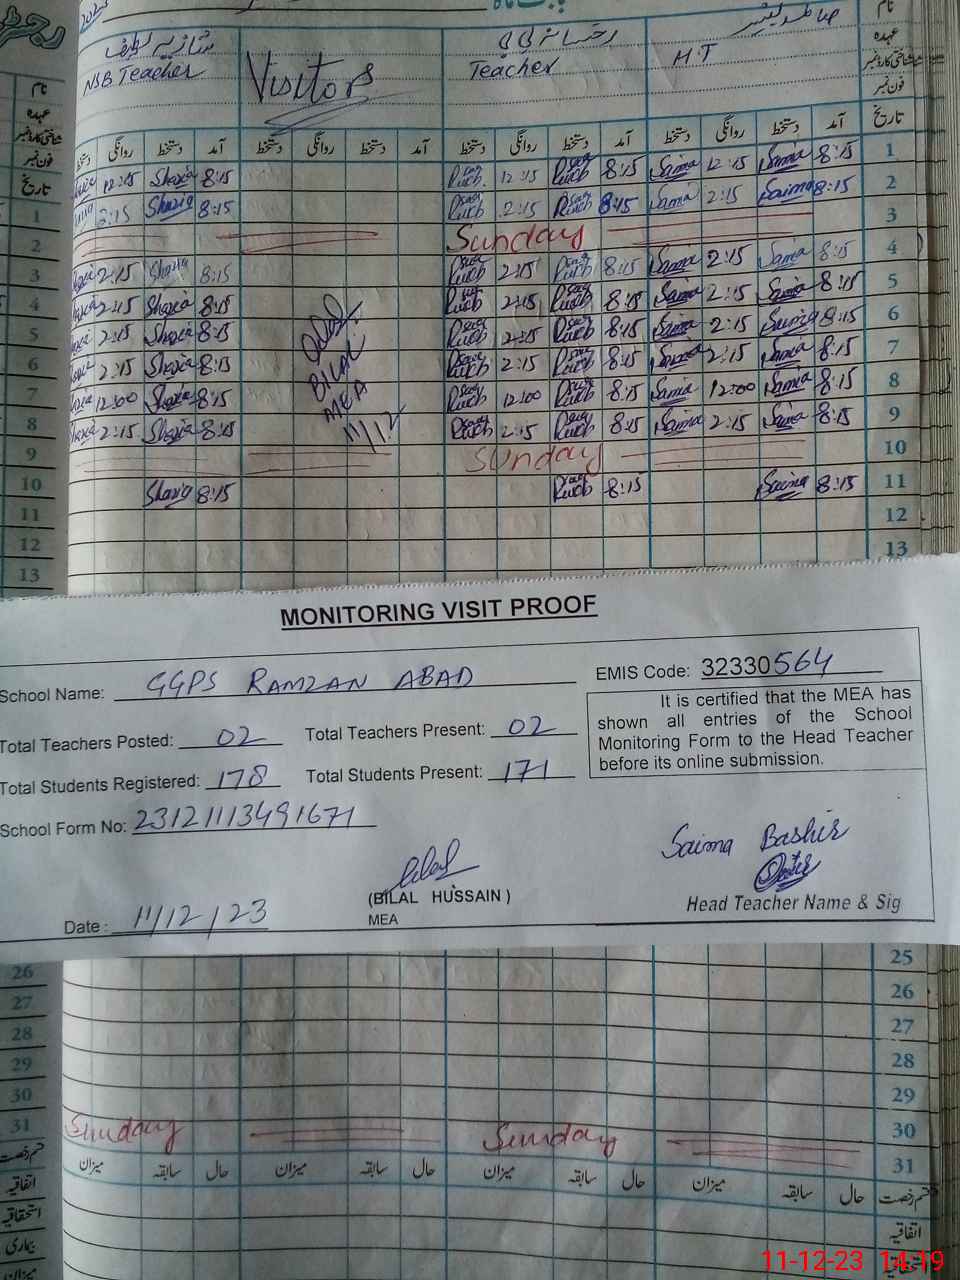 نام
عہدہ
شناختی کارڈ نمبر
فون نمبر
NSB Teacher
Visitor
Teacher
H.T
تاریخ آمد دستخط روانگی دستخط آمد دستخط روانگی دستخط آمد دستخط روانگی دستخط آمد دستخط روانگی دستخط
1 8:15 Saima 12:15 Saima 8:15 12:15 8:15 Shazia 12:15
2 8:15 Saima 2:15 Saima 8:15 2:15 8:15 Shazia 2:15
3 Sunday
4 8:15 Saima 2:15 Saima 8:15 2:15 8:15 Shazia 2:15
5 8:15 Saima 2:15 Saima 8:15 2:15 8:15 Shazia 2:15
6 8:15 Saima 2:15 Saima 8:15 2:15 8:15 Shazia 2:15
7 8:15 Saima 2:15 Saima 8:15 2:15 8:15 Shazia 2:15
8 8:15 Saima 12:00 Saima 8:15 12:00 8:15 Shazia 12:00
9 8:15 Saima 2:15 Saima 8:15 2:15 8:15 Shazia 2:15
10 Sunday
11 8:15 Saima 8:15 8:15 Shazia
12
13
BILAL
MEA
11/12
MONITORING VISIT PROOF
School Name: GGPS RAMZAN ABAD
EMIS Code: 32330564
Total Teachers Posted: 02 Total Teachers Present: 02
Total Students Registered: 178 Total Students Present: 171
School Form No: 23121113491671
It is certified that the MEA has
shown all entries of the School
Monitoring Form to the Head Teacher
before its online submission.
Saima Bashir
(BILAL HUSSAIN)
MEA
Head Teacher Name & Sig
Date: 11/12/23
25
26
27
28
29
30
31
Sunday Sunday
میزان سابقہ حال میزان سابقہ حال میزان سابقہ حال میزان سابقہ حال
قسم رخصت
اتفاقیہ
استحقاقیہ
نام
عہدہ
شناختی کارڈ نمبر
فون نمبر
تاریخ
1
2
3
4
5
6
7
8
9
10
11
12
13
26
27
28
29
30
31
قسم رخصت
اتفاقیہ
استحقاقیہ
بیماری
میزان
11-12-23 14:19